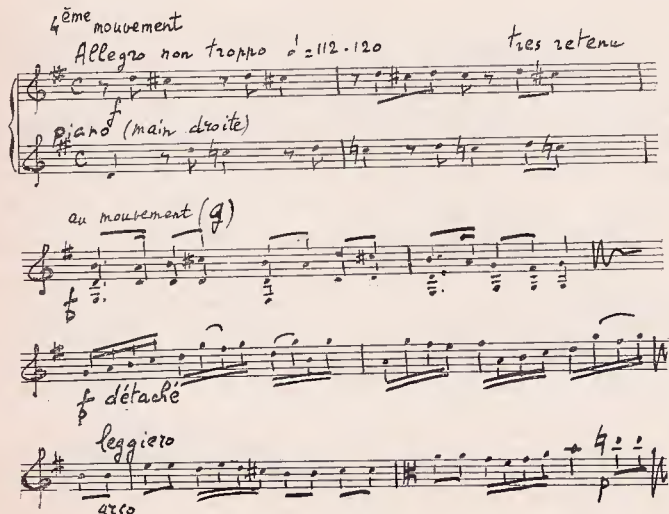 4ème mouvement
Allegro non troppo ♩=112-120 tres retenu
f
piano (main droite)
au mouvement (g)
f
f détaché
leggiero
arco p